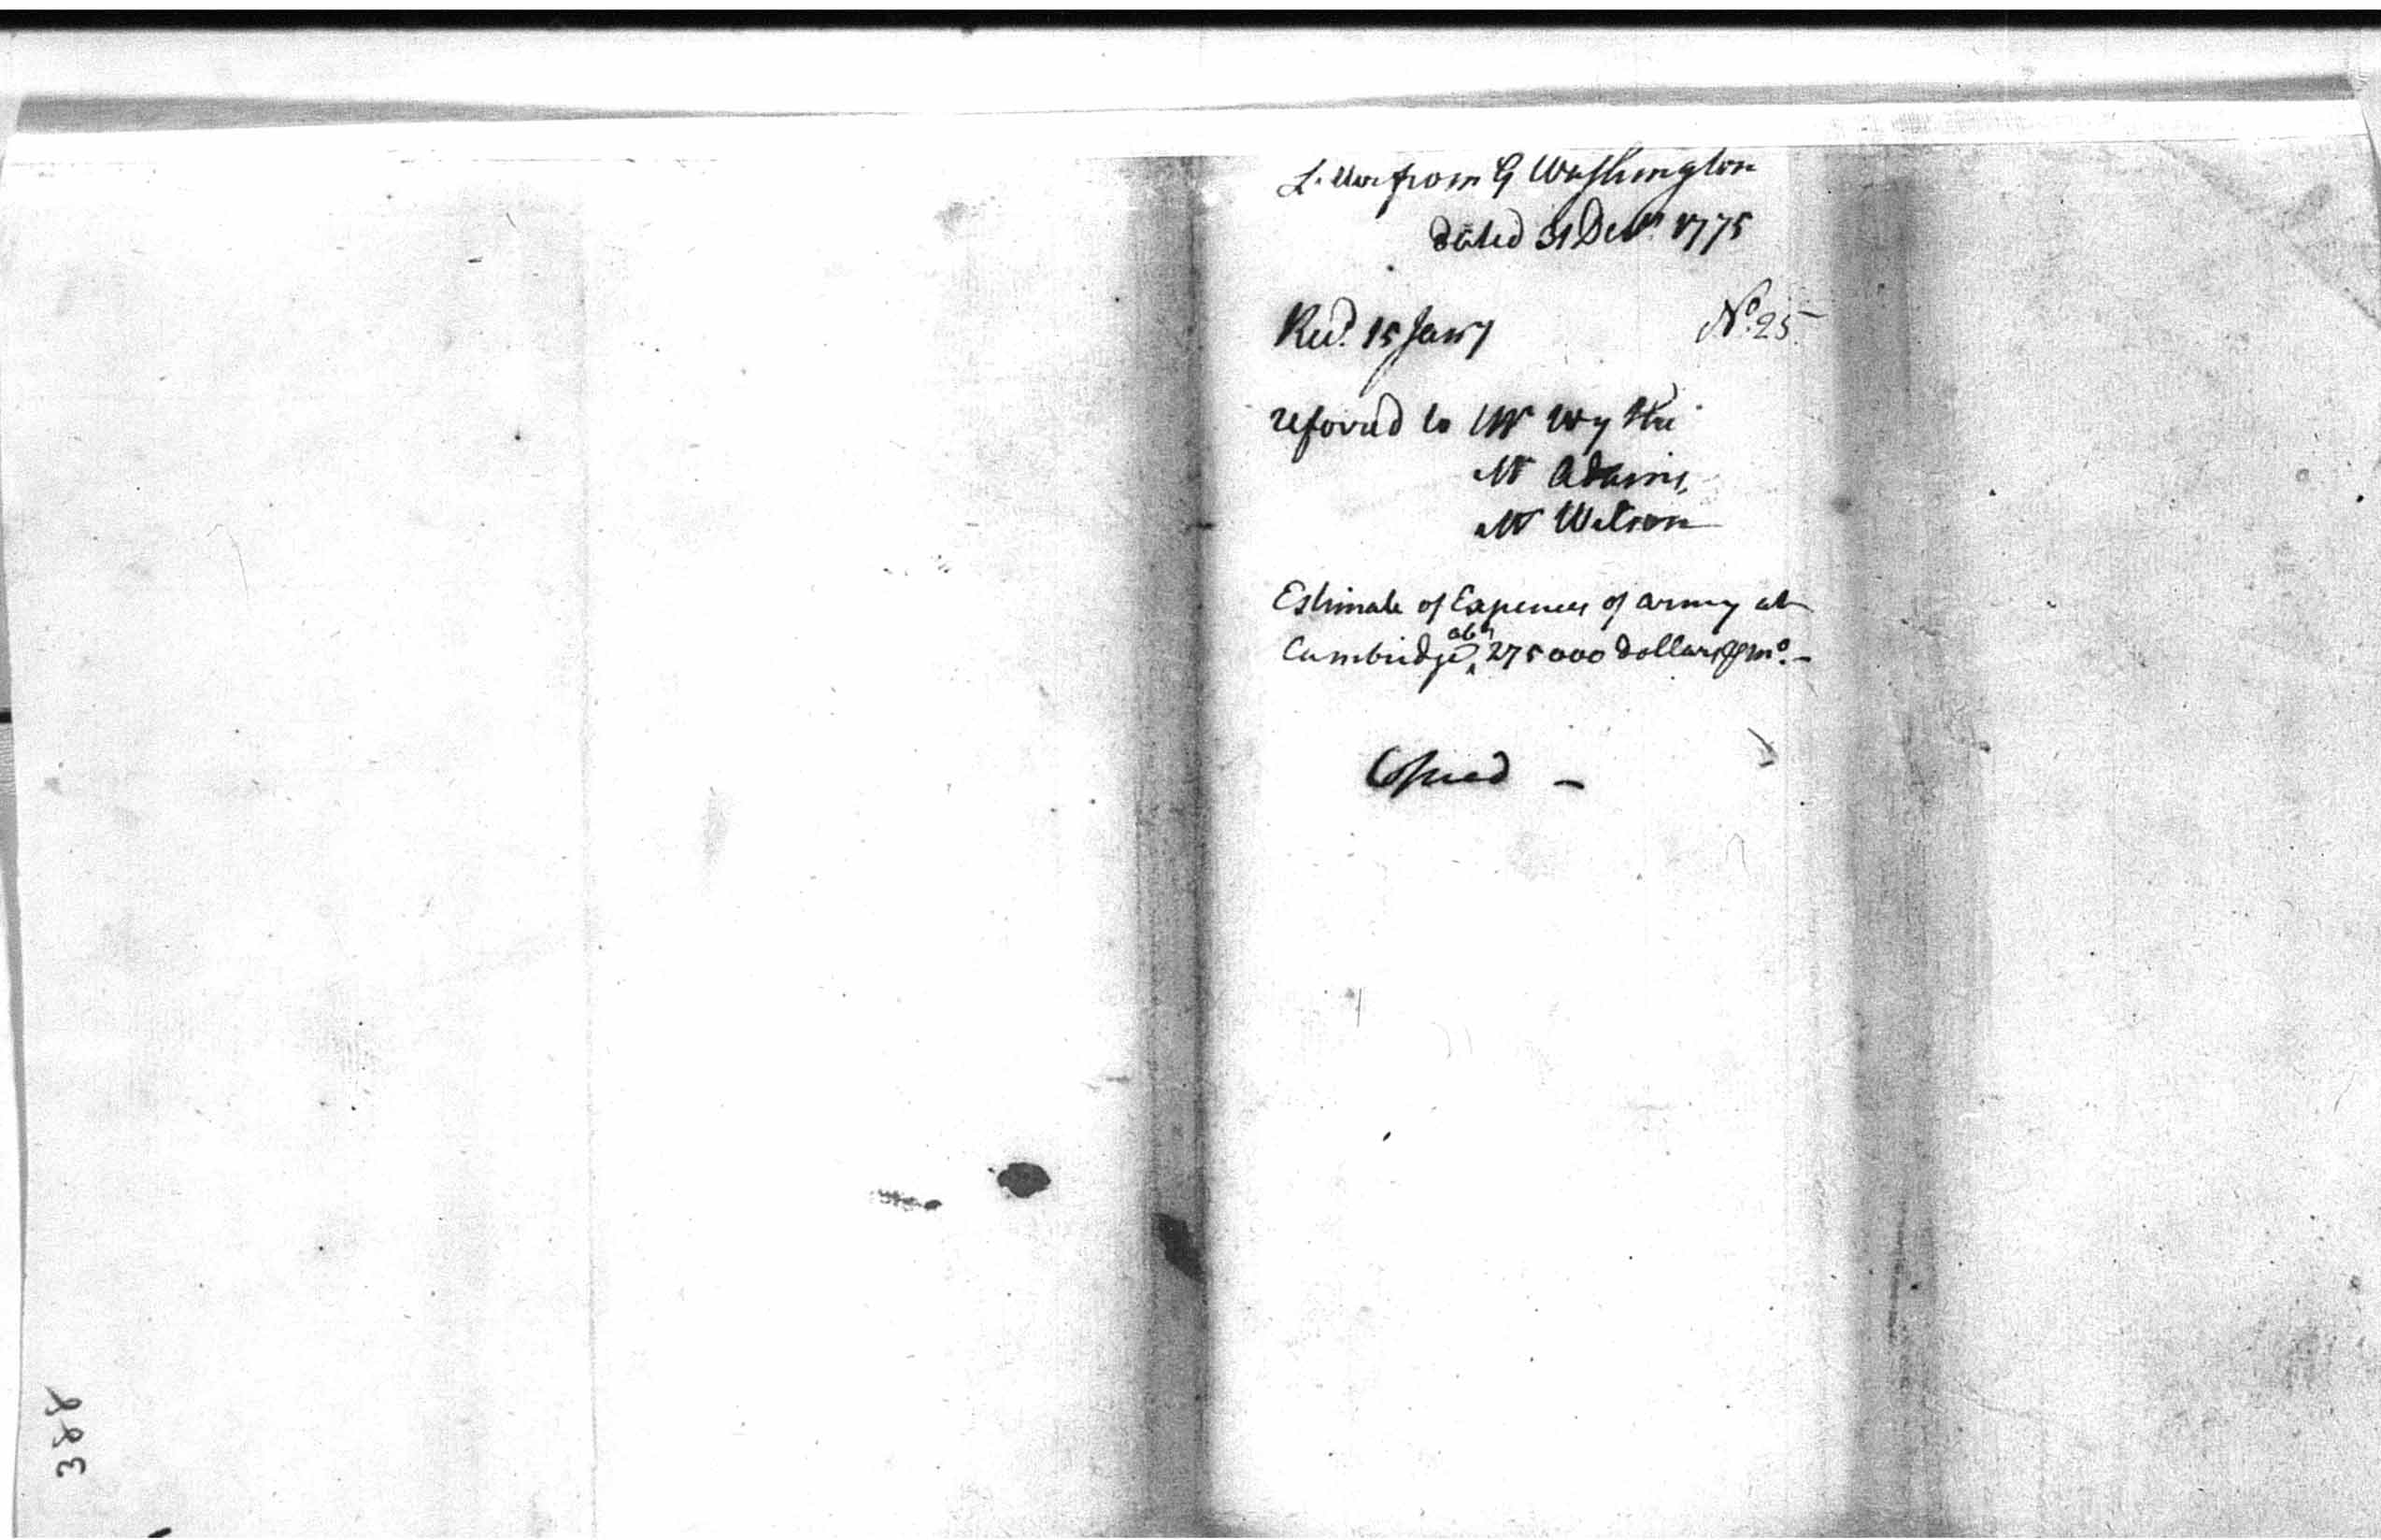 Letter from G Washington
dated 31 Decr. 1775
Recd. 15 Jany
No. 25.
referred to Mr Wythe
Mr Adams,
Mr Wilson
Estimate of Expences of army at
Cambridge abt 275000 dollars ⅌ mo. -
Copied -
388